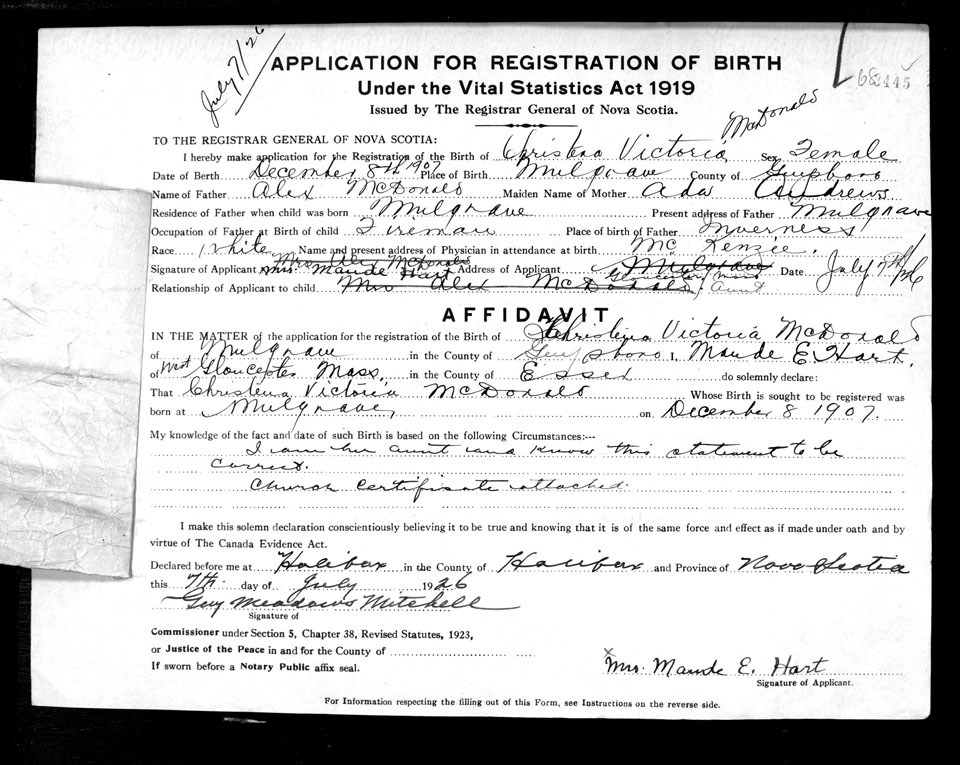 July 7/26
APPLICATION FOR REGISTRATION OF BIRTH
68445
Under the Vital Statistics Act 1919
Issued by The Registrar General of Nova Scotia.
McDonald
TO THE REGISTRAR GENERAL OF NOVA SCOTIA:
I hereby make application for the Registration of the Birth of Christena Victoria Sex Female
Date of Birth December 8th 1907 Place of Birth Mulgrave County of Guysboro
Name of Father Alex McDonald Maiden Name of Mother Ada Andrews
Residence of Father when child was born Mulgrave Present address of Father Mulgrave
Occupation of Father at Birth of child Fireman Place of birth of Father Inverness
Race White Name and present address of Physician in attendance at birth Mc Kenzie
Mrs Alex McDonald
Signature of Applicant Mrs. Maude Hart Address of Applicant Mulgrave Date July 7th/26
Relationship of Applicant to child Mrs Alex McDonald Aunt
AFFIDAVIT
IN THE MATTER of the application for the registration of the Birth of Christena Victoria McDonald
of Mulgrave in the County of Guysboro I, Maude E. Hart
of West Gloucester Mass. in the County of Essex do solemnly declare:
That Christena Victoria McDonald Whose Birth is sought to be registered was
born at Mulgrave, on December 8 1907.
My knowledge of the fact and date of such Birth is based on the following Circumstances:---
I am her aunt and know this statement to be
correct.
Church certificate attached.
I make this solemn declaration conscientiously believing it to be true and knowing that it is of the same force and effect as if made under oath and by
virtue of The Canada Evidence Act.
Declared before me at Halifax in the County of Halifax and Province of Nova Scotia
this 7th. day of July 1926
Guy Meadows Mitchell
Signature of
Commissioner under Section 5, Chapter 38, Revised Statutes, 1923,
or Justice of the Peace in and for the County of
If sworn before a Notary Public affix seal.
x Mrs. Maude E. Hart
Signature of Applicant.
For Information respecting the filling out of this Form, see Instructions on the reverse side.